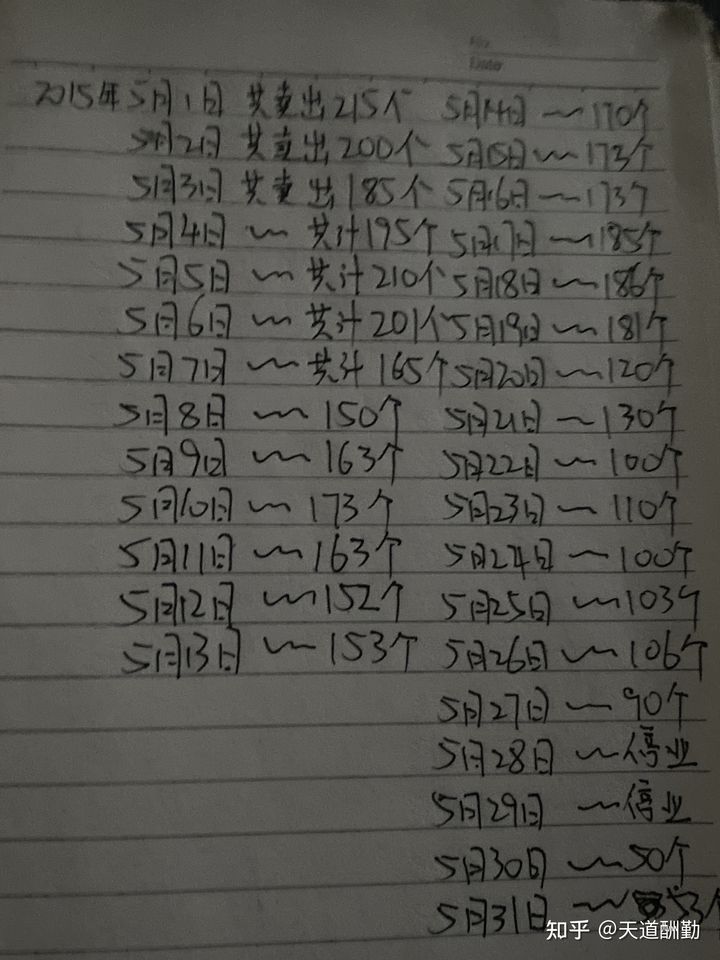 File
Date
2015年5月1日 共卖出215个
5月2日 共卖出200个
5月3日 共卖出185个
5月4日 ～ 共计195个
5月5日 ～ 共计210个
5月6日 ～ 共计201个
5月7日 ～ 共计165个
5月8日 ～ 150个
5月9日 ～ 163个
5月10日 ～ 173个
5月11日 ～ 163个
5月12日 ～ 152个
5月13日 ～ 153个
5月14日 ～ 170个
5月15日 ～ 173个
5月16日 ～ 173个
5月17日 ～ 185个
5月18日 ～ 186个
5月19日 ～ 181个
5月20日 ～ 120个
5月21日 ～ 130个
5月22日 ～ 100个
5月23日 ～ 110个
5月24日 ～ 100个
5月25日 ～ 103个
5月26日 ～ 106个
5月27日 ～ 90个
5月28日 ～ 停业
5月29日 ～ 停业
5月30日 ～ 50个
5月31日 ～ 53个
知乎 @天道酬勤